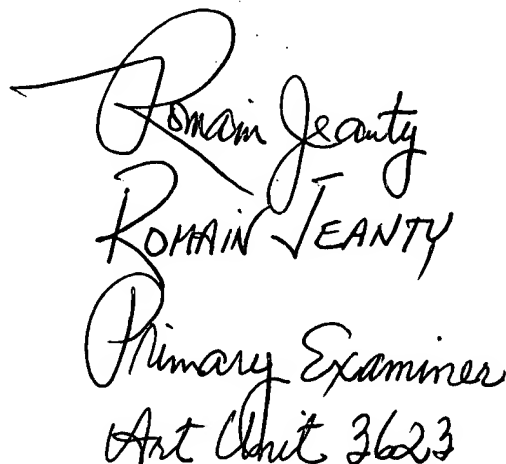 Romain Jeanty
ROMAIN JEANTY
Primary Examiner
Art Unit 3623